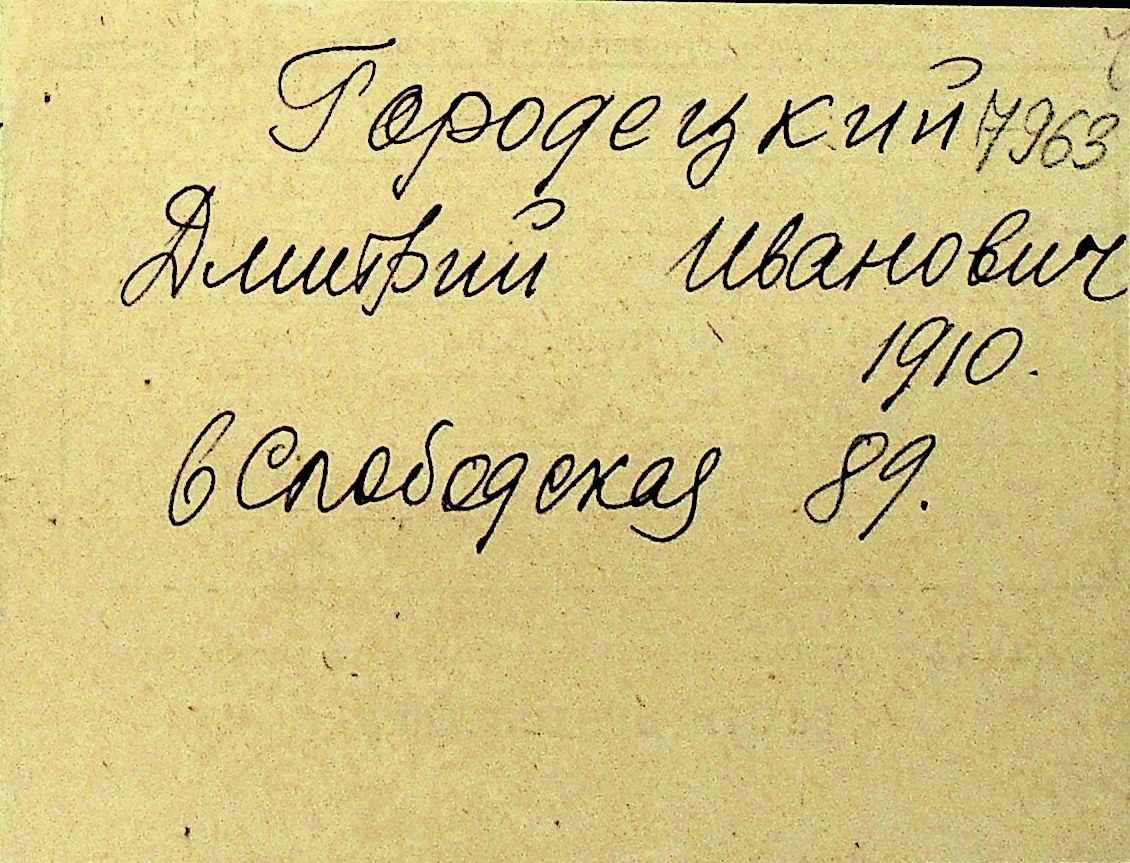 Городецкий 7963
Дмитрий Иванович
1910.
в Слободская 89.